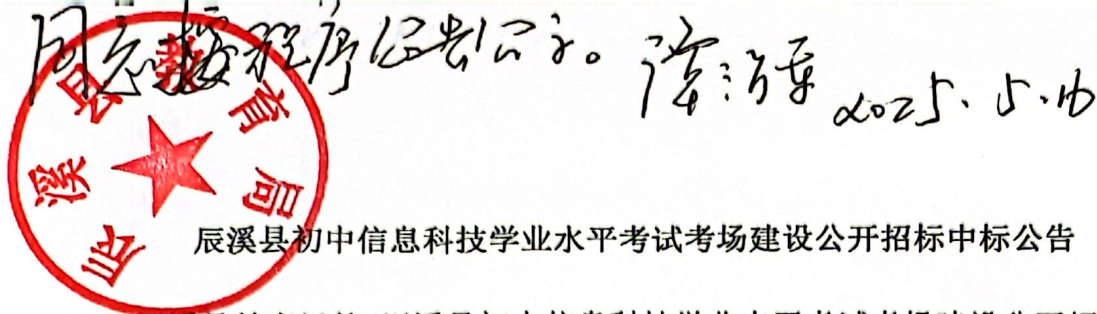 同意按程序公告公示。 2025.5.16
辰溪县教育局
辰溪县初中信息科技学业水平考试考场建设公开招标中标公告